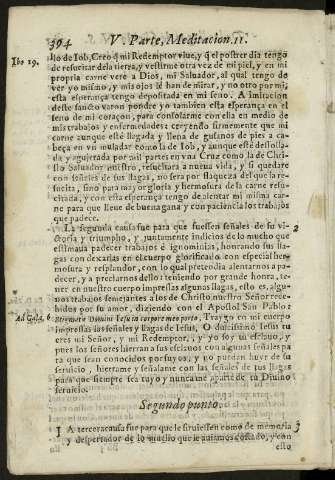 394 V. Parte, Meditacion. 11.
Iob 19. llo de Iob, Creo q̃ mi Redemptor viue, y q̃ el postrer dia tengo
de resucitar dela tierra, y vestirme otra vez de mi piel, y en mi
propria carne vere a Dios, mi Saluador, al qual tengo de
ver yo mismo, y mis ojos le han de mirar, y no otro por mi;
esta esperança tengo depositada en mi seno. A imitacion
deste sancto varon pondre yo tambien esta esperança en el
seno de mi coraçon, para consolarme con ella en medio de
mis trabajos y enfermedades: creyendo firmemente que mi
carne aunque esté llagada y llena de gusanos de pies a ca-
beça en vn muladar como la de Iob, y aunque esté desolla-
da y agujerada por mil partes en vna Cruz como la de Chri-
sto Saluador nuestro, resucitará a nueua vida, y si quedare
con señales de sus llagas, no sera por flaqueza del que la re-
sucita, sino para mayor gloria y hermosura de la carne resu-
citada, y con esta esperança tengo de alentar mi misma car-
ne para que lleue de buena gana y con paciencia los trabajos
que padece.
La segunda causa fue para que fuessen señales de su vi- 2
ctoria y triumpho, y juntamente indicios de lo mucho que
estimaua padecer trabajos è ignominias, honrando sus lla-
gas con dexarlas en el cuerpo glorificado con especial her-
mosura y resplandor, con lo qual pretendia alentarnos a pa-
decer, y a preciarnos dello: teniendo por grande honra, te-
ner en nuestro cuerpo impressas algunas llagas, esto es, al-
gunos trabajos semejantes a los de Christo nuestro Señor rece-
bidos por su amor, diziendo con el Apostol San Pablo:
Ad Gala. 6. Stigmata Domini Iesu in corpore meo porto. Traygo en mi cuerpo
impressas las señales y llagas de Iesus, O dulcissimo Iesus tu
eres mi Señor, y mi Redemptor, y yo soy tu esclauo, y
pues los señores hierran a sus esclauos con algunas señales pa
ra que sean conocidos por suyos, y no puedan huyr de su
seruicio, hierrame y señalame con las señales de tus llagas
para que siempre sea tuyo y nunca me aparte de tu Diuino
seruicio.
Segundo punto.
1 LA tercera causa fue para que le siruiessen como de memoria 3
y despertador de lo mucho que le auiamos costado, y con
esto